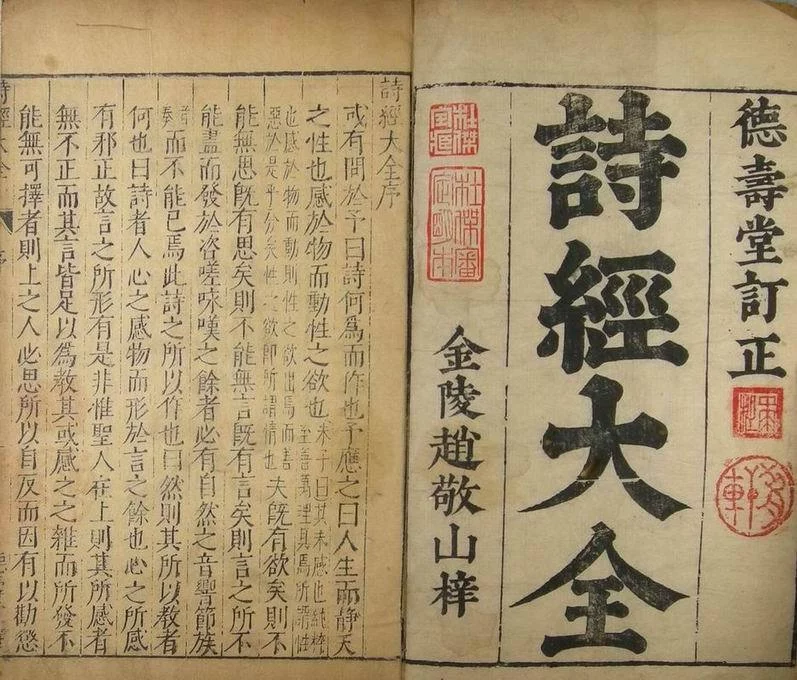 德壽堂訂正
詩經大全
金陵趙敬山梓
詩經大全序
或有問於予曰詩何爲而作也予應之曰人生而靜天
之性也感於物而動性之欲也朱子曰其未感也純粹至善萬理具焉所謂性
也感於物而動則性之欲出焉而善惡於是乎分矣性之欲即所謂情也夫既有欲矣則不
能無思既有思矣則不能無言既有言矣則言之所不
能盡而發於咨嗟咏嘆之餘者必有自然之音響節族
音奏而不能已焉此詩之所以作也曰然則其所以教者
何也曰詩者人心之感物而形於言之餘也心之所感
有邪正故言之所形有是非惟聖人在上則其所感者
無不正而其言皆足以為教其或感之之雜而所發不
能無可擇者則上之人必思所以自反而因有以勸懲
詩經大全 序